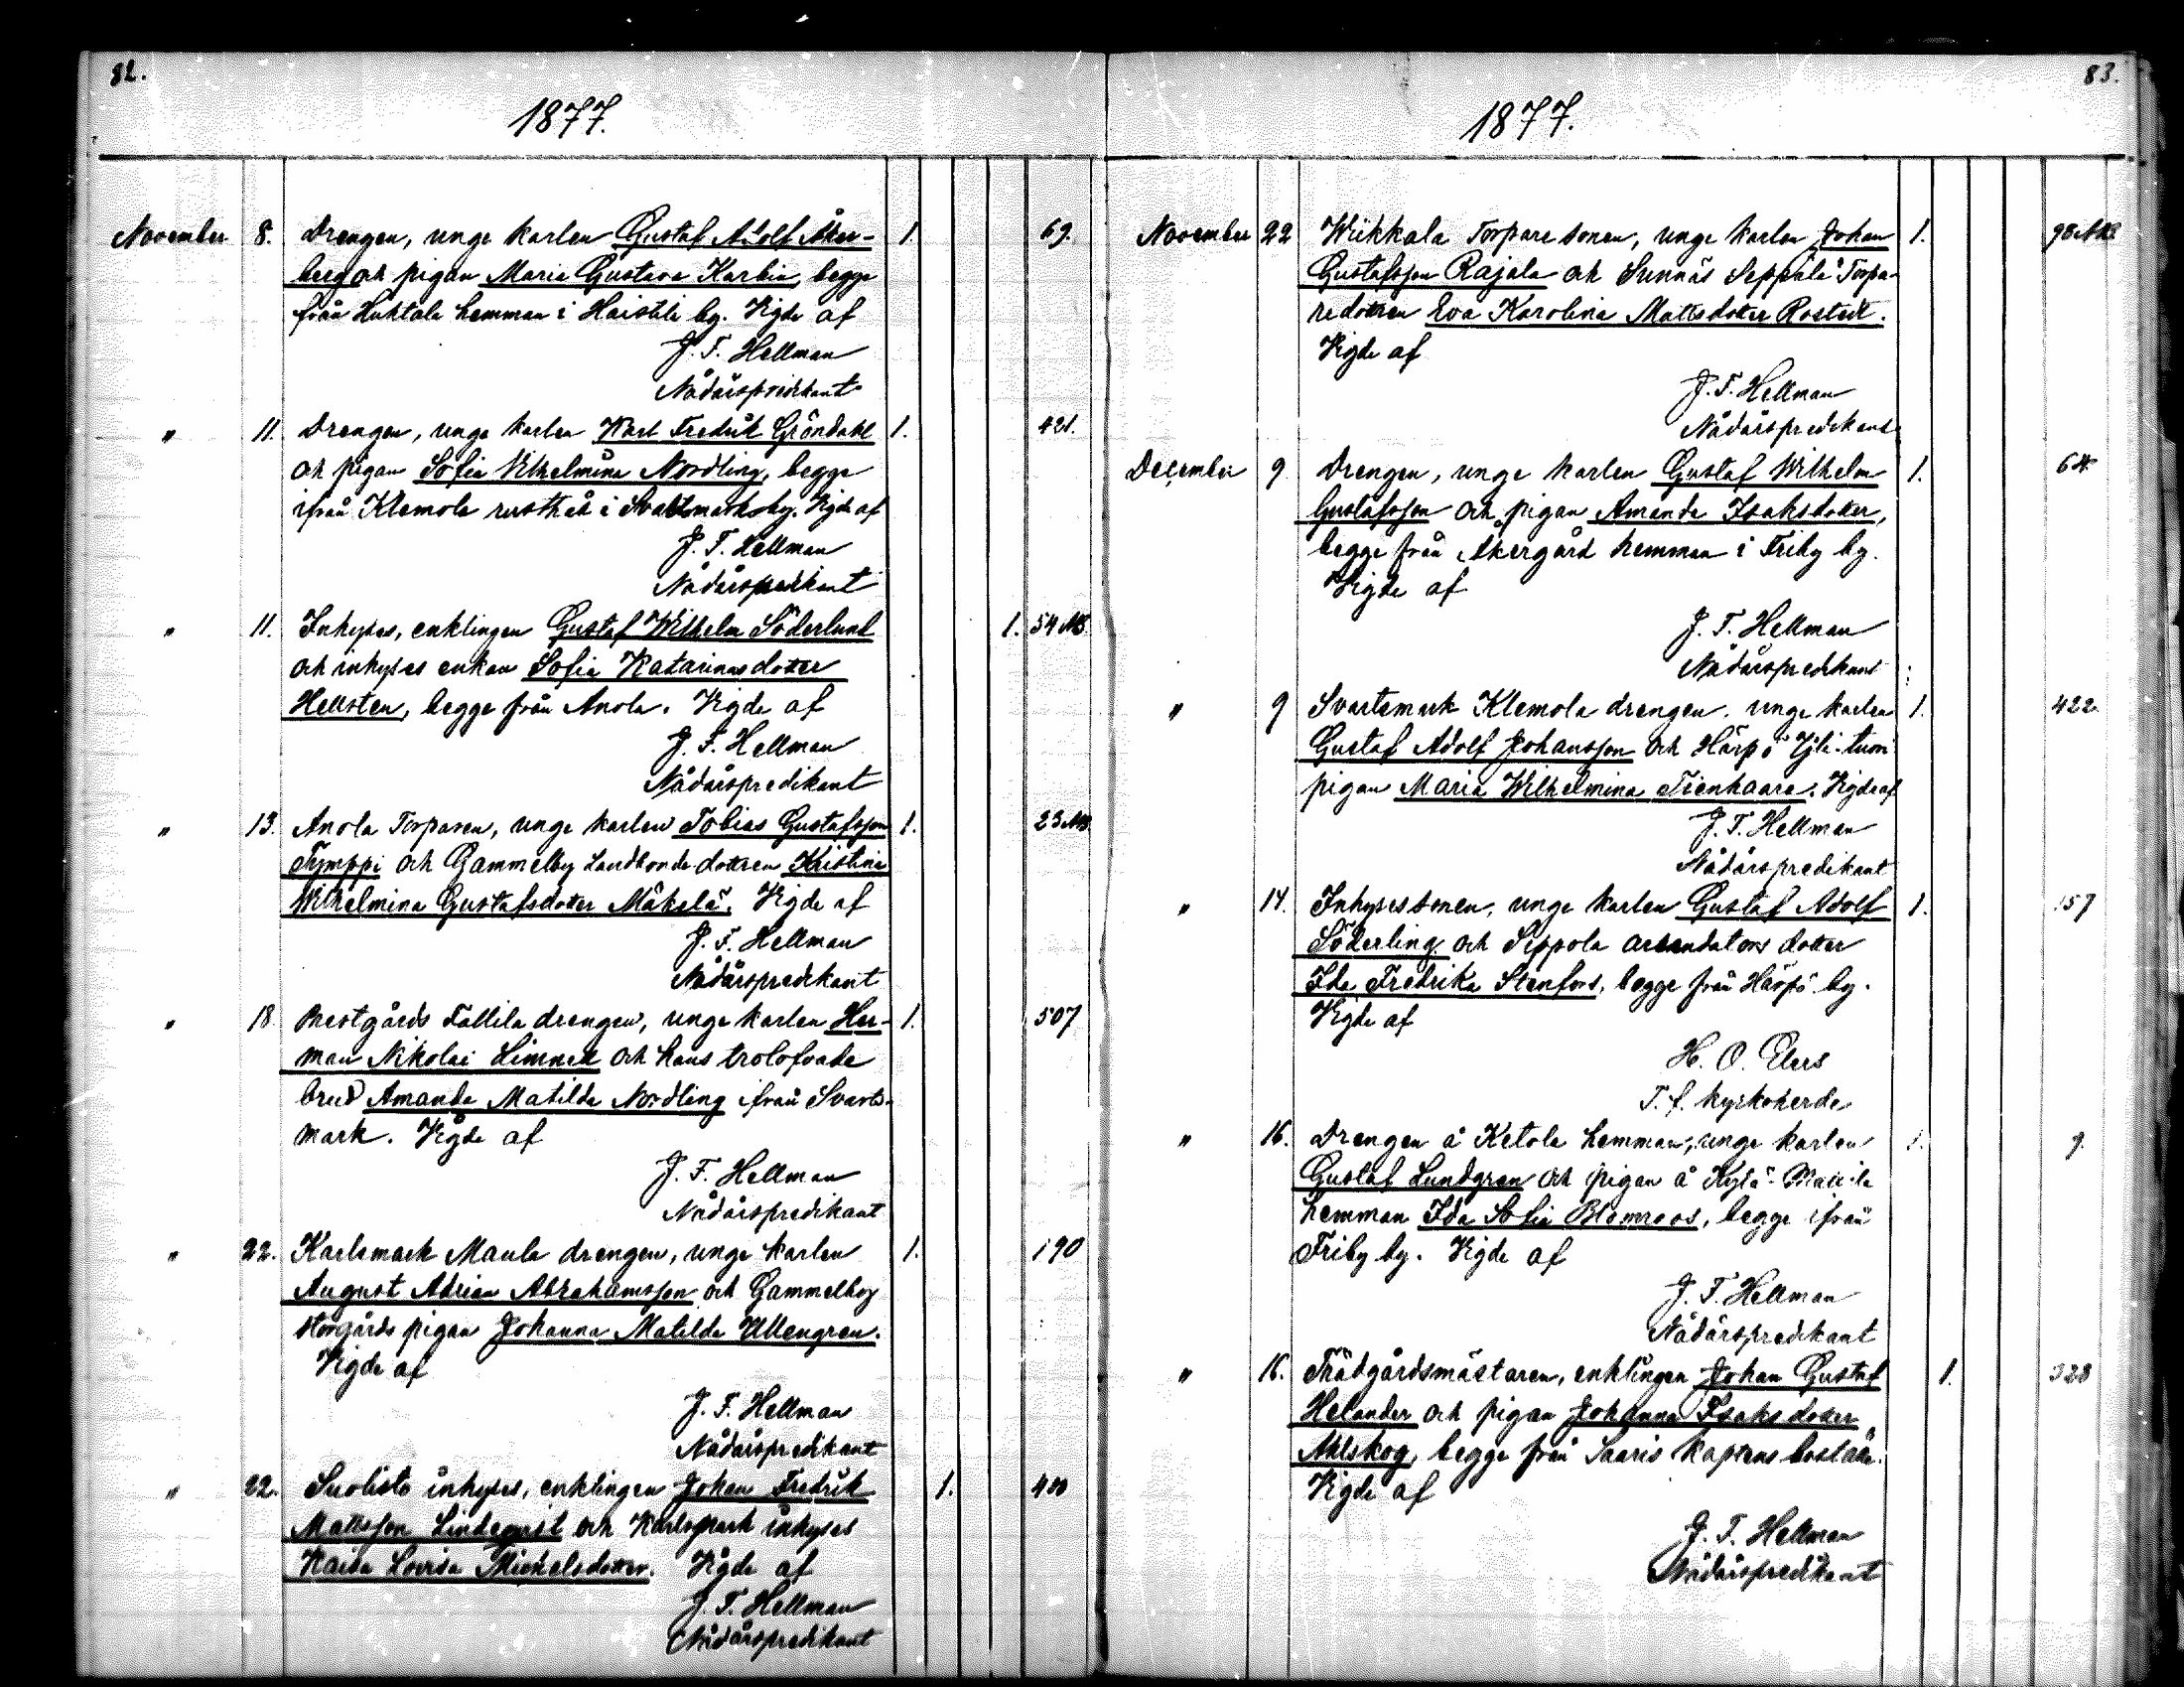 82.
1877.
November 8. Drengen, unge karlen Gustaf Adolf Åker- 1. 69.
berg och pigan Maria Gustava Karbin, begge
från Huhtala hemman i Haistila by. Vigde af
J. F. Hellman
Nådårspredikant
" 11. Drengen, unge karlen Karl Fredrik Gröndahl 1. 421.
och pigan Sofia Vilhelmina Nordling, begge
ifrån Klemola rusthåll i Svartsmark by. Vigde af
J. F. Hellman
Nådårspredikant
" 11. Inhyses, enklingen Gustaf Wilhelm Söderlund 1. 54 AB.
och inhyses enkan Sofia Katarinasdotter
Hellsten, begge från Anola. Vigde af
J. F. Hellman
Nådårspredikant
" 13. Anola Torparen, unge karlen Tobias Gustafsson 1. 23 AB.
Tymppi och Gammelby Landbonde dottren Kristina
Wilhelmina Gustafsdotter Mäkelä. Vigde af
J. F. Hellman
Nådårspredikant
" 18 Prestgårds Tallila drengen, unge karlen Her- 1. 507
man Nikolai Limnell och hans trolofvade
brud Amanda Matilda Nordling ifrån Svarts-
mark. Vigde af
J. F. Hellman
Nådårspredikant
" 22. Karlsmark Maula drengen, unge karlen 1. 190
August Adrian Abrahamsson och Gammelby
storgårds pigan Johanna Matilda Ullengren.
Vigde af
J. F. Hellman
Nådårspredikant
" 22. Suolisto inhyses, enklingen Johan Fredrik 1. 400
Mattsson Lindeqvist och Karlsmark inhyses
Kaisa Lovisa Mickelsdotter. Vigde af
J. F. Hellman
Nådårspredikant
83.
1877.
November 22 Wiikkala Torpare sonen, unge karlen Johan 1. 98 AB.
Gustafsson Rajala och Sunnäs Seppälä Torpa-
redottren Eva Karolina Mattsdotter Rostedt.
Vigde af
J. F. Hellman
Nådårspredikant
December 9 Drengen, unge karlen Gustaf Wilhelm 1. 64
Gustafsson och pigan Amanda Isaksdotter,
begge från Åkergård hemman i Friby by.
Vigde af
J. F. Hellman
Nådårspredikant
" 9 Svartsmark Klemola drengen, unge karlen 1. 422.
Gustaf Adolf Johansson och Härpö Yli-tuori
pigan Maria Wilhelmina Tienhaara. Vigde af
J. F. Hellman
Nådårspredikant
" 14. Inhysessonen, unge karlen Gustaf Adolf 1. 157
Söderling och Seppola arrendators dotter
Ida Fredrika Stenfors, begge från Härpö by.
Vigde af
H. O. Elers
T. f. kyrkoherde
" 16. Drengen å Ketola hemman, unge karlen 1. 9.
Gustaf Lundgren och pigan å Kylä-Mattila
hemman Ida Sofia Blomroos, begge ifrån
Friby by. Vigde af
J. F. Hellman
Nådårspredikant
" 16. Trädgårdsmästaren, enklingen Johan Gustaf 1. 328
Helander och pigan Johanna Isaksdotter
Ahlskog, begge från Saaris kaptens boställe.
Vigde af
J. F. Hellman
Nådårspredikant